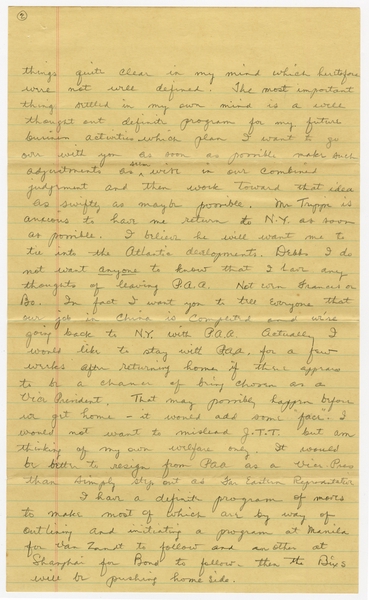 2
things quite clear in my mind which heretofore
were not well defined. The most important
thing settled in my own mind is a well
thought out definite program for my future
business activities which plan I want to go
over with you as soon as possible make such
adjustments as seem wise in our combined
judgment and then work toward that idea
as swiftly as maybe possible. Mr Trippe is
anxious to have me return to N.Y. as soon
as possible. I believe he will want me to
tie into the Atlantic developments. Debbs I do
not want anyone to know that I have any
thoughts of leaving P.A.A. Not even Francis or
Bo. In fact I want you to tell everyone that
our job in China is completed and we're
going back to N.Y. with PAA Actually I
would like to stay with PAA. for a few
weeks after returning home if there appears
to be a chance of being chosen as a
Vice President. That may possibly happen before
we get home - it would add some "face". I
would not want to mislead J.T.T. but am
thinking of my own welfare only. It would
be better to resign from PAA as a Vice-Pres
than simply step out as Far Eastern Representative
I have a definite program of moves
to make most of which are by way of
outlining and initiating a program at Manila
for Van Zandt to follow and another at
Shanghai for Bond to follow - then the Bixs
will be pushing home side.